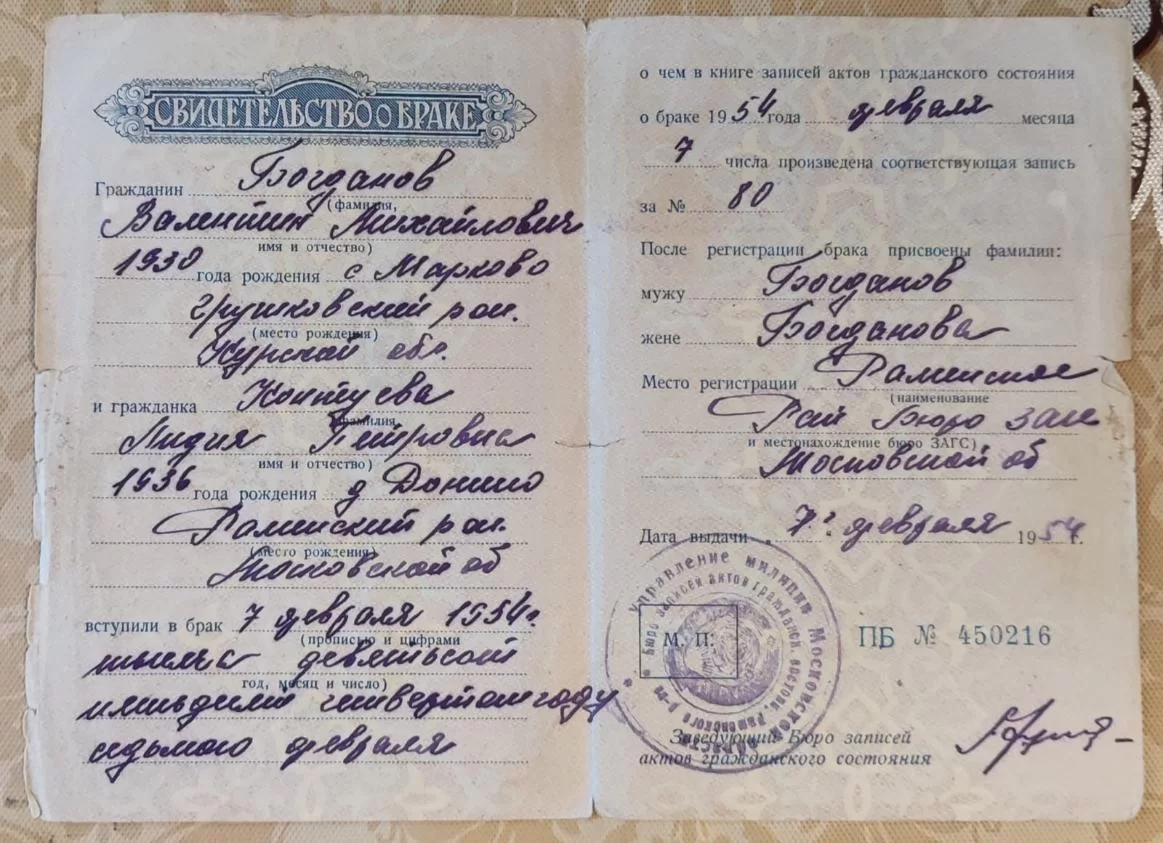 СВИДЕТЕЛЬСТВО О БРАКЕ
Гражданин Богданов
(фамилия,
Валентин Михайлович
имя и отчество)
1930 года рождения с Марково
рон.
(место рождения)
Курской обл.
и гражданка
фамилия,
Лидия Петровна
имя и отчество)
1936 года рождения д Донино
Раменский рон.
(место рождения)
Московской об
вступили в брак 7 февраля 1954г.
(прописью и цифрами
тысяча девятьсот
год, месяц и число)
пятьдесят четвертом году
седьмого февраля
о чем в книге записей актов гражданского состояния
о браке 1954 года февраля месяца
7 числа произведена соответствующая запись
за № 80
После регистрации брака присвоены фамилии:
мужу Богданов
жене Богданова
Место регистрации Раменское
(наименование
Рай Бюро загс
и местонахождение бюро ЗАГС)
Московской об
Дата выдачи 7 февраля 1954г.
Управление милиции Московской области
Бюро записей актов гражданск. состоян. Раменского р-на
М. П.
ПБ № 450216
Заведующий Бюро записей
актов гражданского состояния